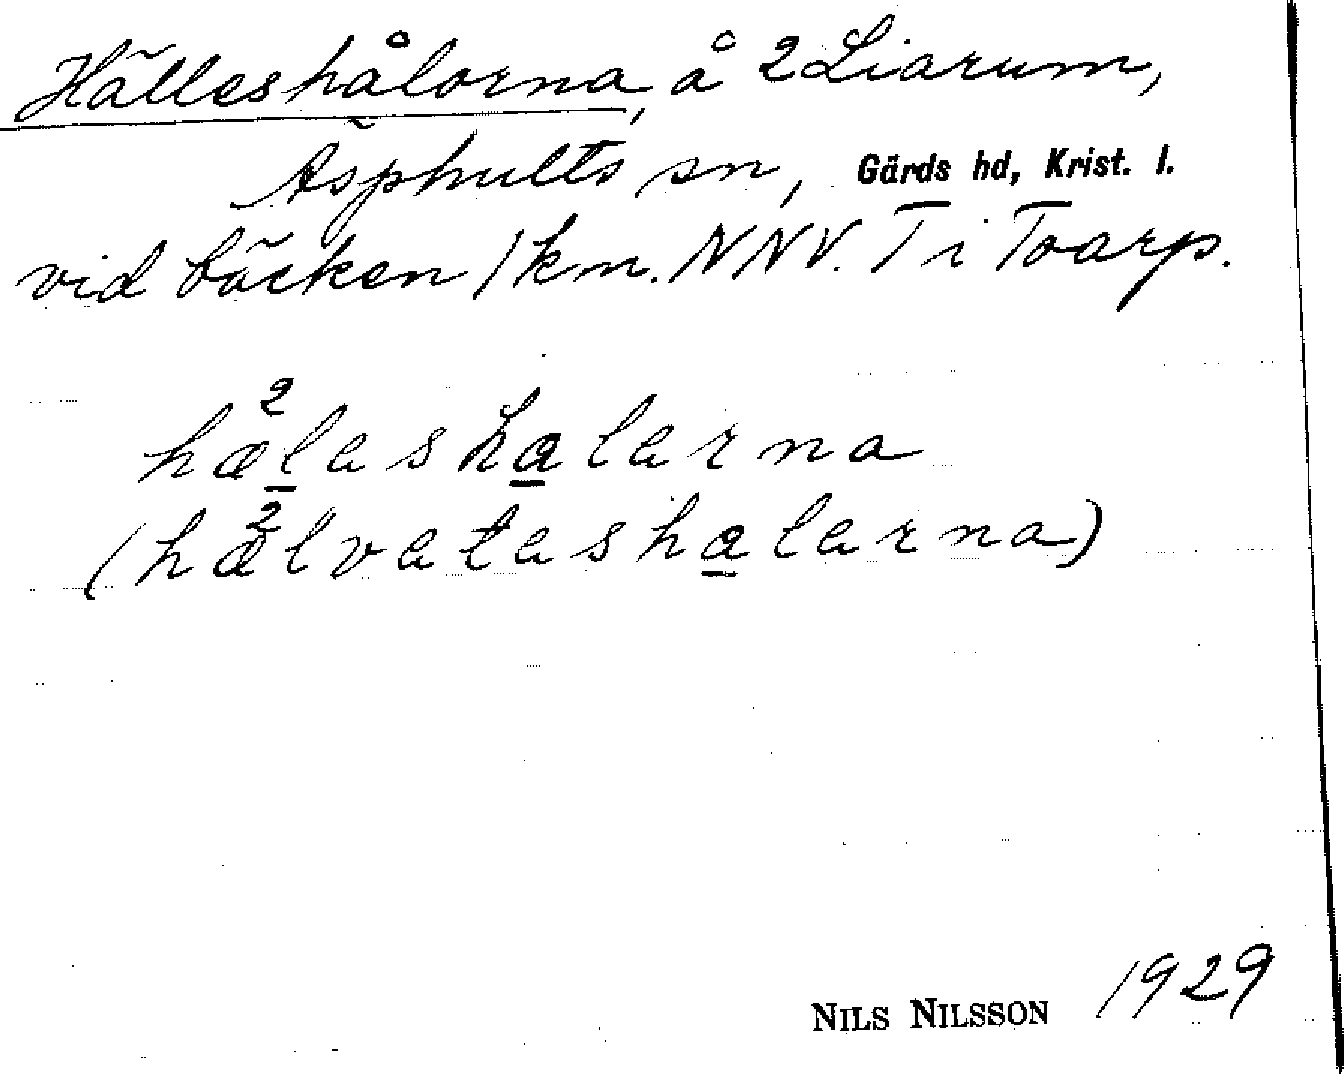 Hälleshålorna, å 2 Liarum,
Äsphults sn, Gärds hd, Krist. l.
vid bäcken 1 km. NNV. T i Toarp.
hæ²leshalerna
(hæ²lveteshalerna)
NILS NILSSON 1929